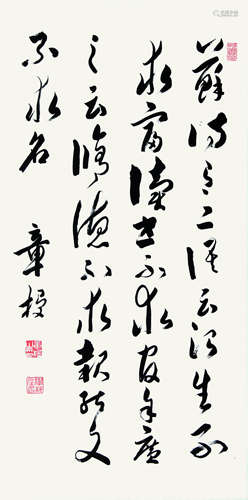 蘇詩二語云治生不
求富讀書不求官余廣
之云修德不求報能文
不求名
章梫